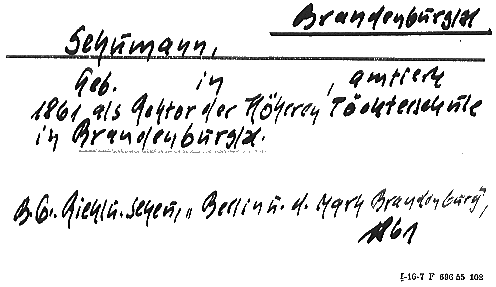 Brandenburg/H.
Schumann,
Geb. in , amtierte
1861 als Rektor der Höheren Töchterschule
in Brandenburg/H.
B.G. Riehl u. Scheu, „Berlin u. d. Mark Brandenburg",
1861
I-16-7 F 696 A5 102